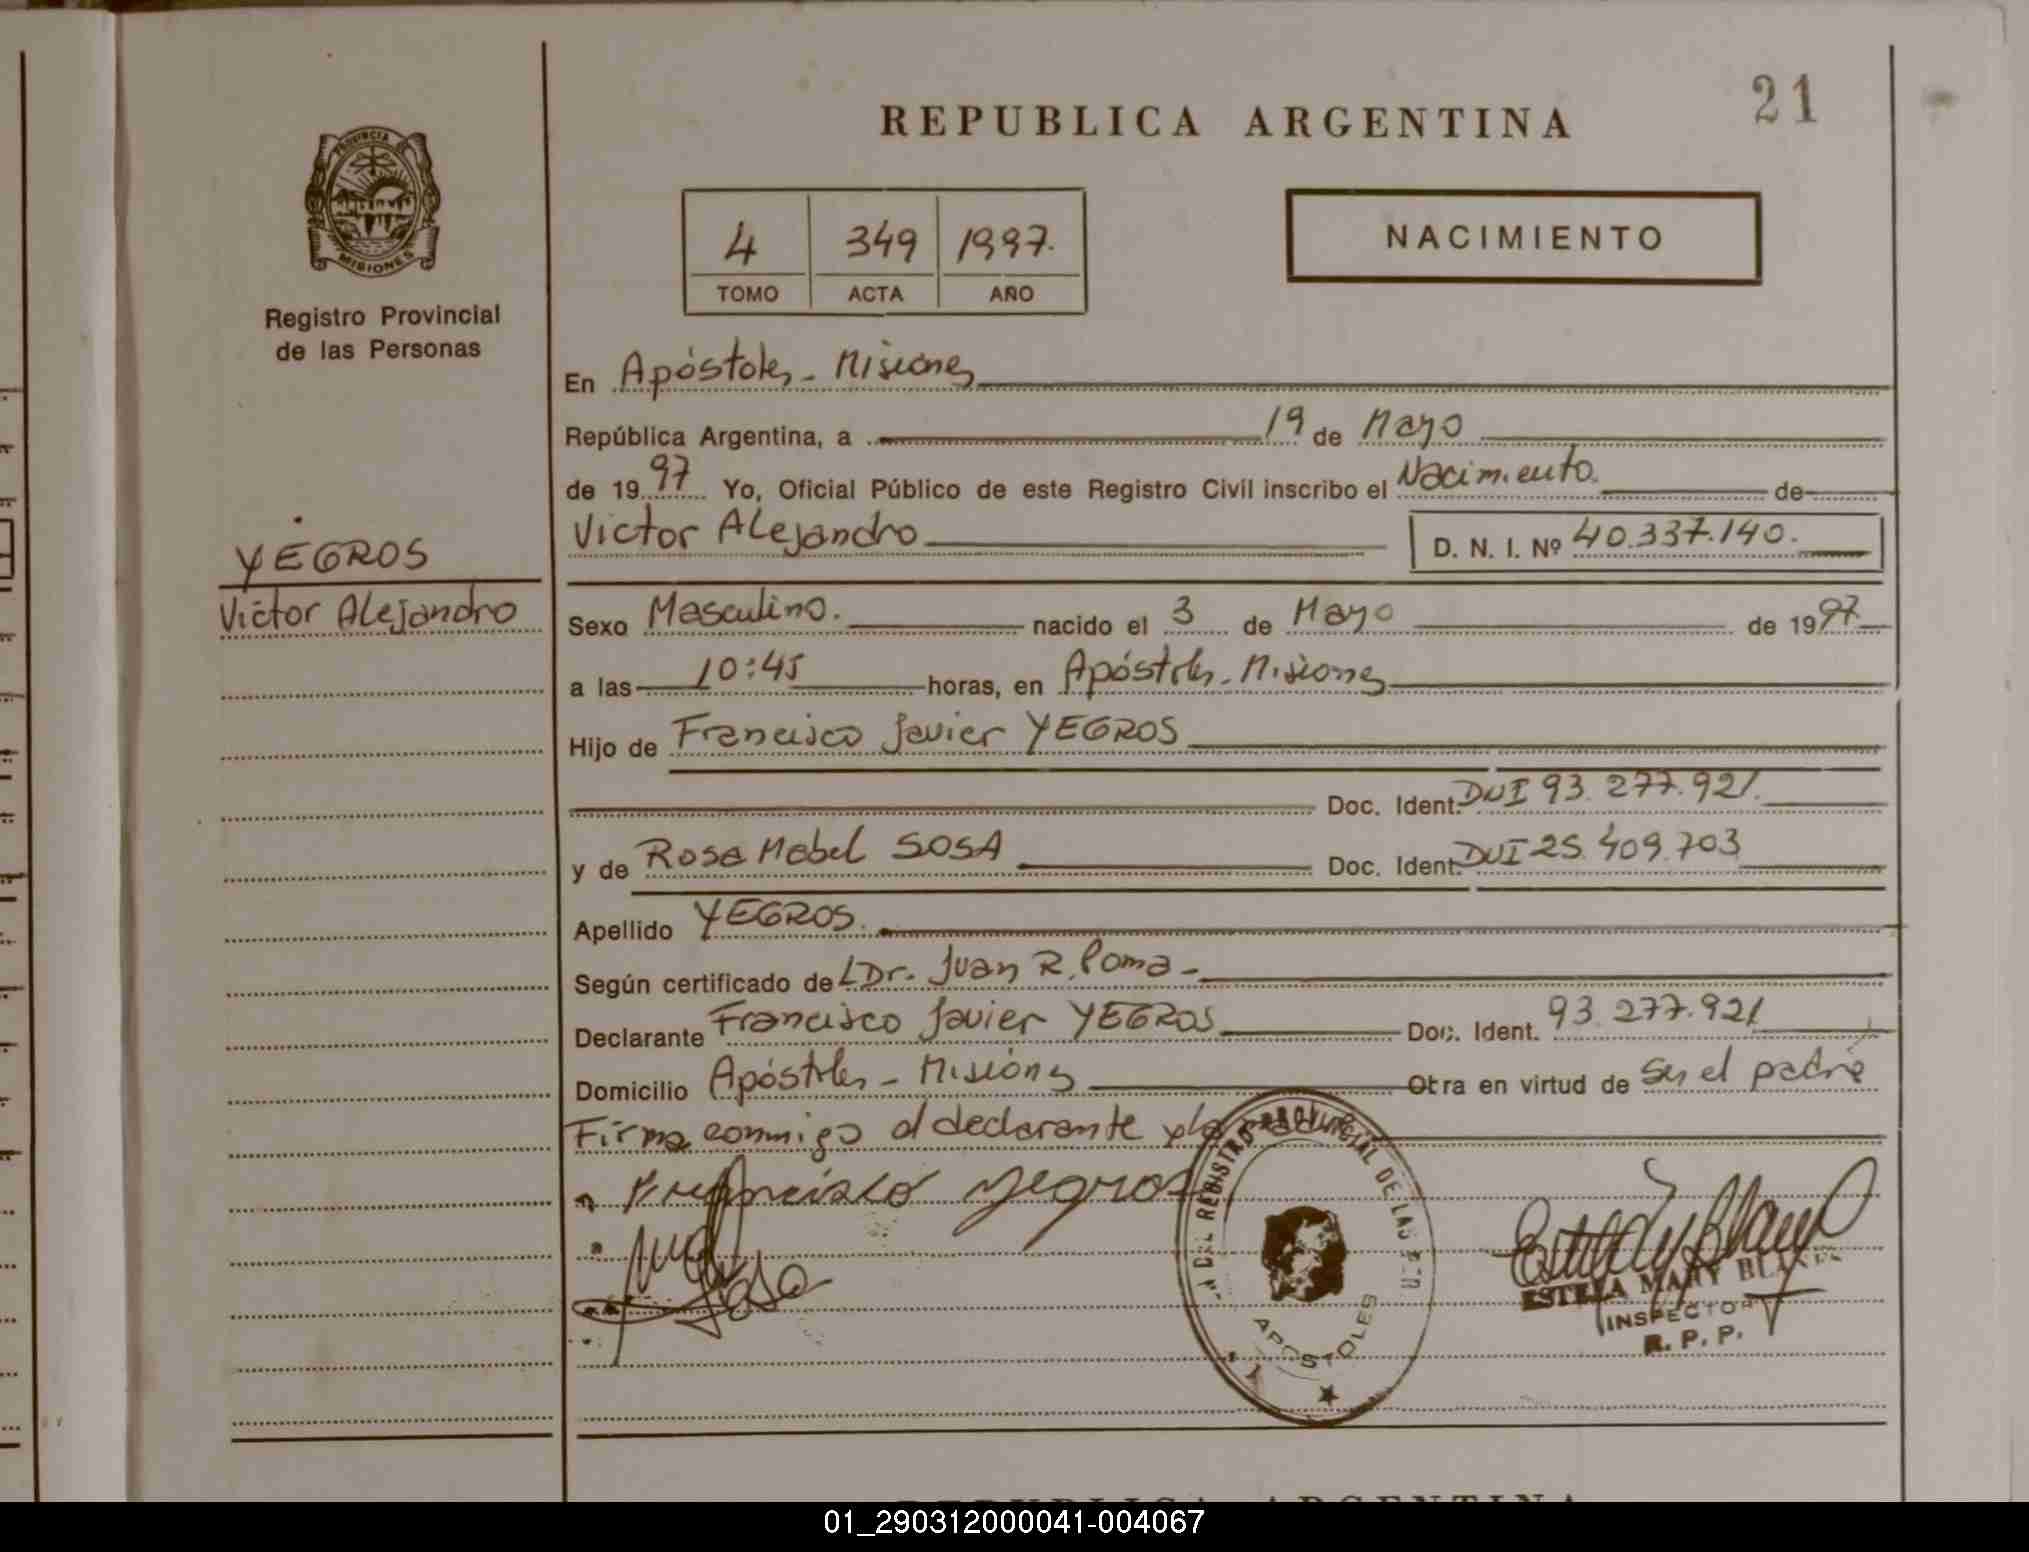 21
REPUBLICA ARGENTINA
PROVINCIA DE
MISIONES
Registro Provincial
de las Personas
4 349 1997.
TOMO ACTA AÑO
NACIMIENTO
En Apóstoles - Misiones
República Argentina, a 19 de Mayo
de 1997 Yo, Oficial Público de este Registro Civil inscribo el Nacimiento. de
Victor Alejandro D. N. I. Nº 40.337.140.
YEGROS
Victor Alejandro
Sexo Masculino. nacido el 3 de Mayo de 1997
a las 10:45 horas, en Apóstoles - Misiones
Hijo de Francisco Javier YEGROS
Doc. Ident. DNI 93.277.921.
y de Rosa Mabel SOSA Doc. Ident. DNI 25.409.703
Apellido YEGROS.
Según certificado de LDr. Juan R. Poma -
Declarante Francisco Javier YEGROS Doc. Ident. 93.277.921
Domicilio Apóstoles - Misiones Obra en virtud de ser el padre
Firma conmigo el declarante y la
Francisco Yegros
Sosa
REGISTRO PROVINCIAL DE LAS PER
APOSTOLES
ESTELA MARY
INSPECTOR
R. P. P.
REPUBLICA ARGENTINA
01_290312000041-004067